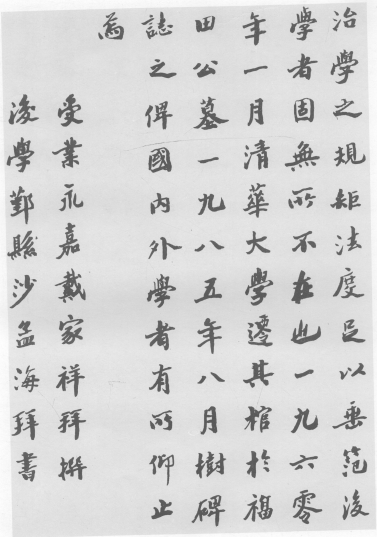 治學之規矩法度足以垂範後
學者固無所不在也一九六零
年一月清華大學遷其棺於福
田公墓一九八五年八月樹碑
誌之俾國內外學者有所仰止
焉
受業永嘉戴家祥拜撰
後學鄞縣沙孟海拜書